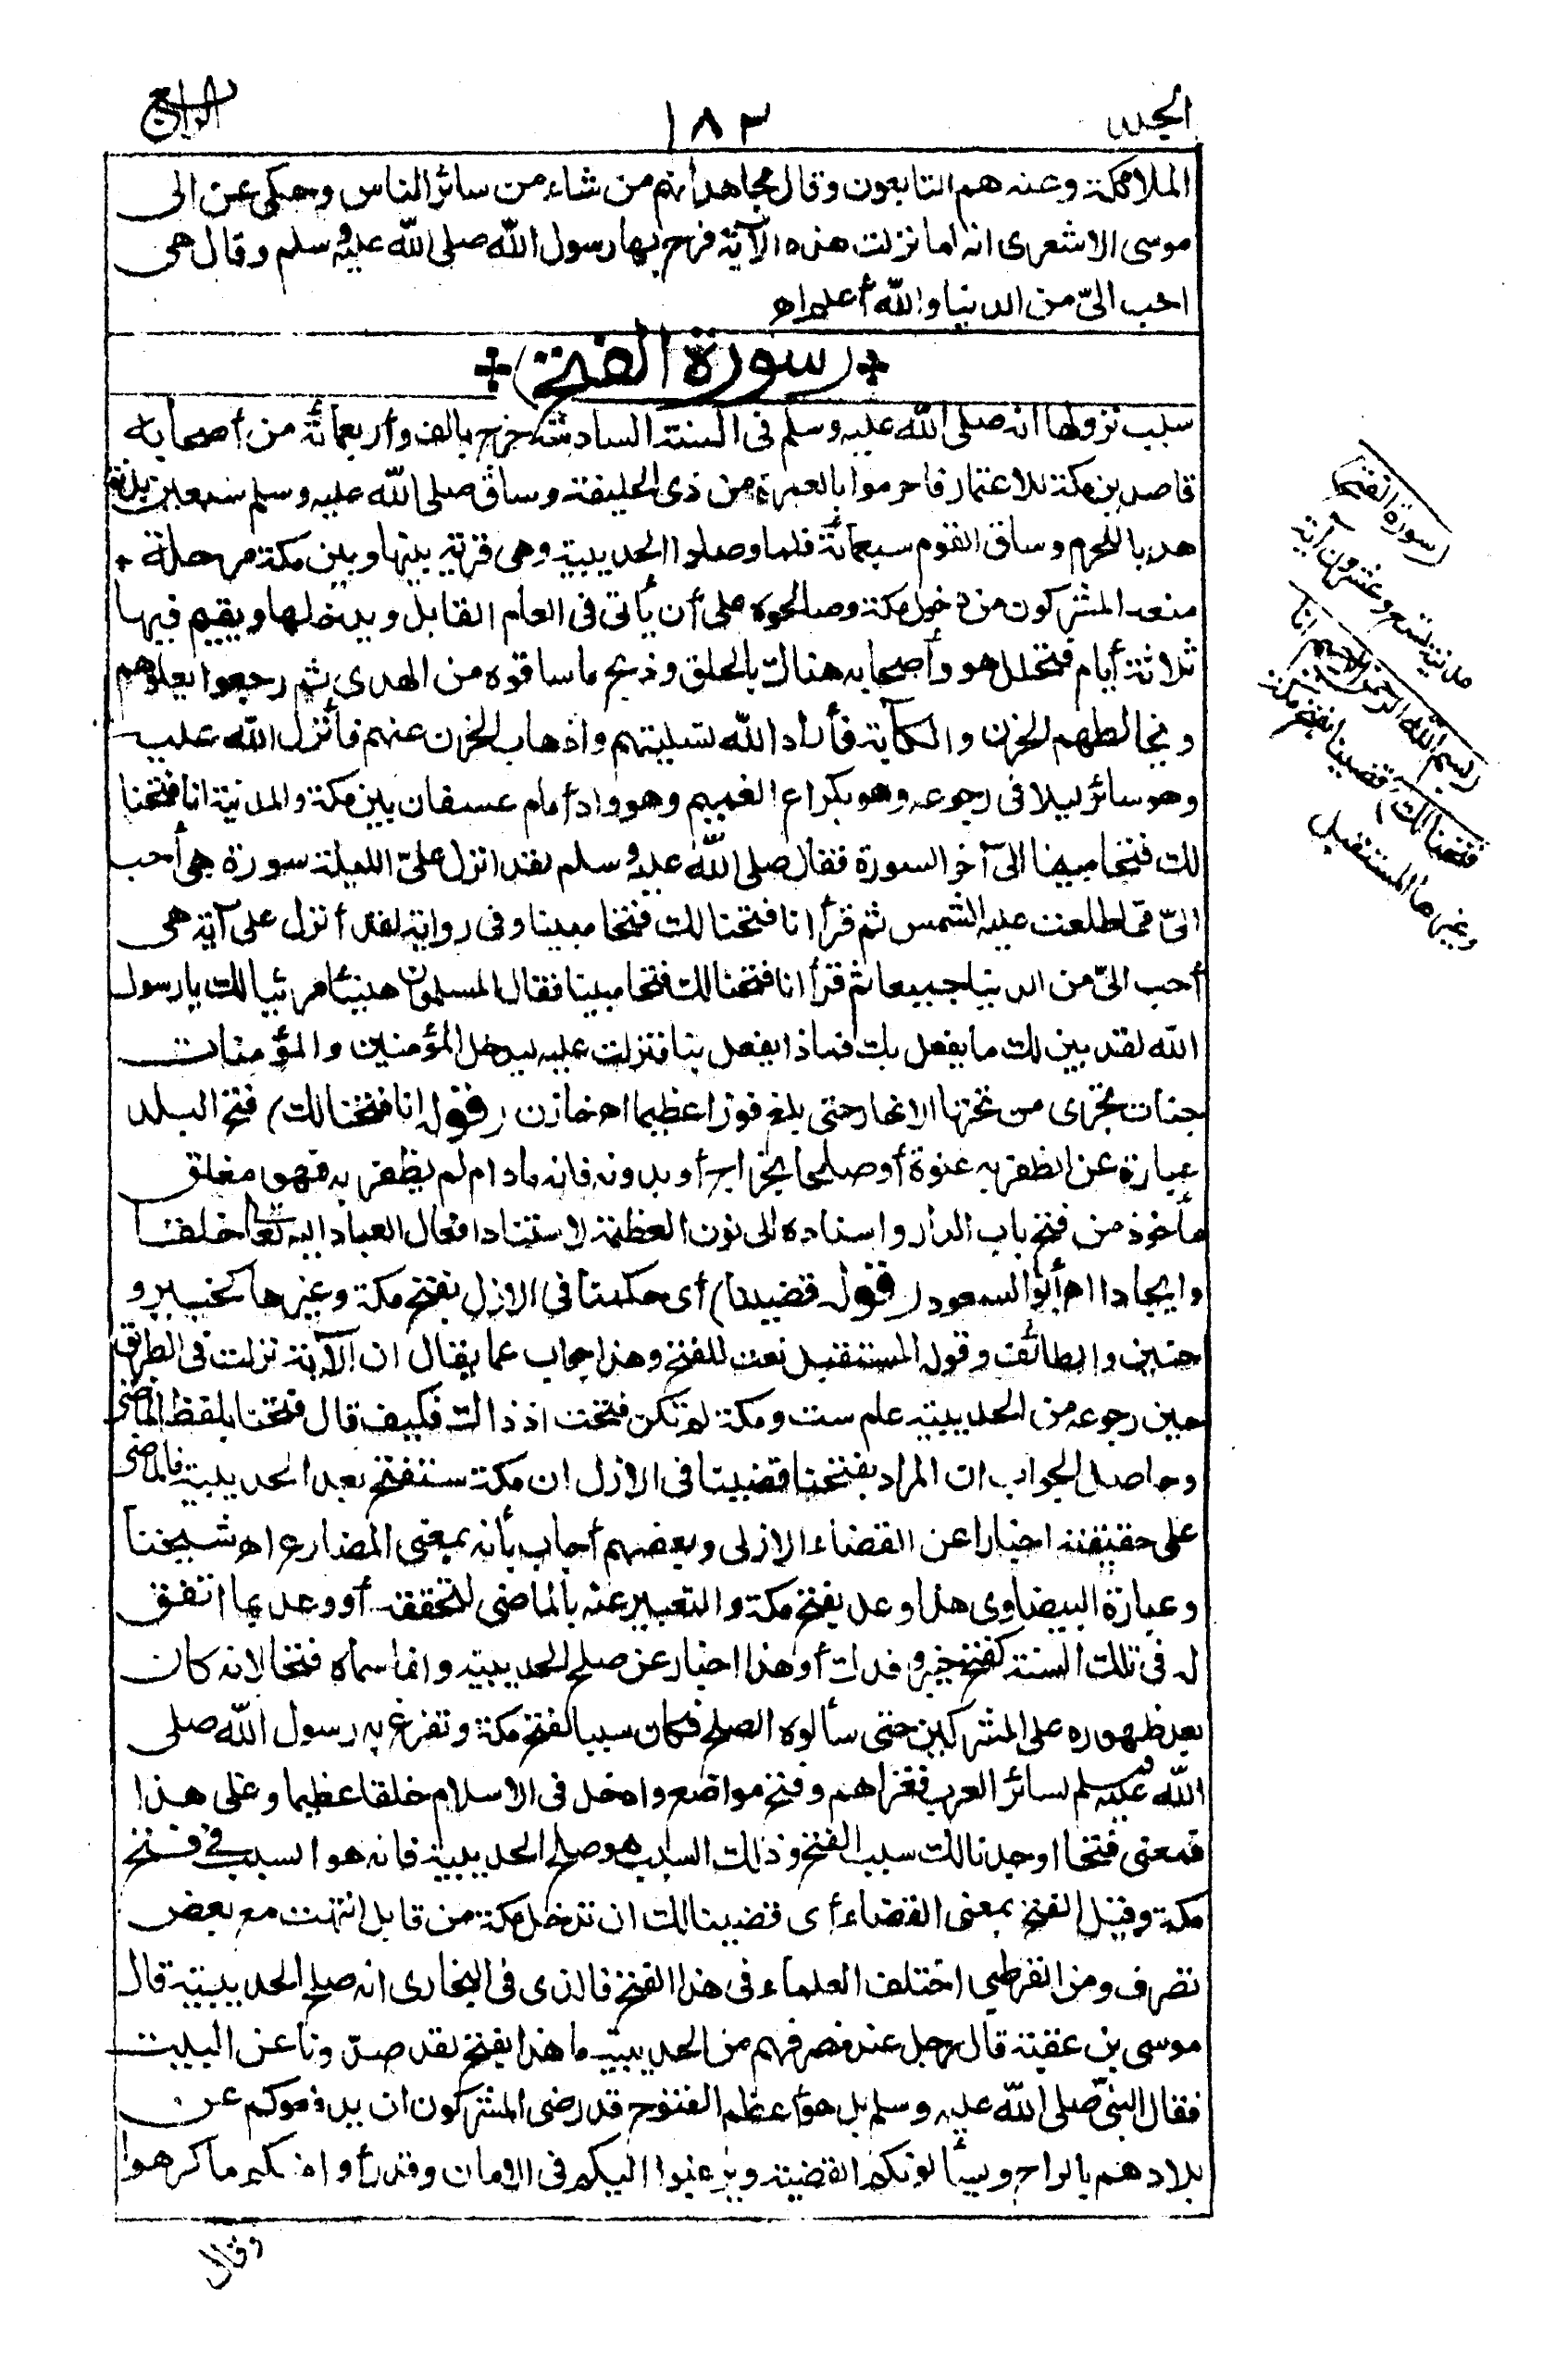 الجزء
١٨٣
الرابع
الملائكة وعنه هم التابعون وقال مجاهد انهم من شاء من سائر الناس وحكى عن ابى
موسى الاشعرى انه لما نزلت هذه الآية فرح بها رسول الله صلى الله عليه وسلم وقال هى
احب الىّ من الدنيا والله أعلم اه
(سورة الفتح)
سبب نزولها انه صلى الله عليه وسلم فى السنة السادسة خرج بالف وأربعمائة من أصحابه
قاصدين مكة للاعتمار فاحرموا بالعمرة من ذى الحليفة وساق صلى الله عليه وسلم سبعين بدنة
هديا للحرم وساق القوم سبعمائة فلما وصلوا الحديبية وهى قرية بينها وبين مكة مرحلة
منعه المشركون من دخول مكة وصالحوه على أن يأتى فى العام القابل ويدخلها ويقيم فيها
ثلاثة أيام فتحلل هو وأصحابه هناك بالحلق وذبح ما ساقوه من الهدى ثم رجعوا يعلوهم
ويخالطهم الحزن والكآبة فأراد الله تسليتهم واذهاب الحزن عنهم فأنزل الله عليه
وهو سائر ليلا فى رجوعه وهو بكراع الغميم وهو واد أمام عسفان بين مكة والمدينة انا فتحنا
لك فتحا مبينا الى آخر السورة فقال صلى الله عليه وسلم لقد انزل علىّ الليلة سورة هى أحب
الىّ مما طلعت عليه الشمس ثم قرأ انا فتحنا لك فتحا مبينا وفى رواية لقد أنزل على آية هى
أحب الىّ من الدنيا جميعا ثم قرأ انا فتحنا لك فتحا مبينا فقال المسلمون هنيئا مريئا لك يا رسول
الله لقد بين لك ما يفعل بك فماذا يفعل بنا فنزلت عليه ليدخل المؤمنين والمؤمنات
جنات تجرى من تحتها الانهار حتى بلغ فوزا عظيما اه خازن (قوله انا فتحنا لك) فتح البلد
عبارة عن الظفر به عنوة أو صلحا بخراج أو بدونه فانه ما دام لم يظفر به فهو مغلق
مأخوذ من فتح باب الدار واسناده الى نون العظمة لاستناد افعال العباد اليه تعالى خلقا
وايجادا اه أبو السعود (قوله قضينا) أى حكمنا فى الازل بفتح مكة وغيرها كخيبر و
حنين والطائف وقوله المستقبل نعت للفتح وهذا جواب عما يقال ان الآية نزلت فى الطريق
حين رجوعه من الحديبية عام ست ومكة لم تكن فتحت اذ ذاك فكيف قال فتحنا بلفظ الماضى
وحاصل الجواب ان المراد بفتحنا قضينا فى الازل ان مكة ستفتح بعد الحديبية فالماضى
على حقيقته اخبارا عن القضاء الازلى وبعضهم أجاب بأنه بمعنى المضارع اه شيخنا
وعبارة البيضاوى هذا وعد بفتح مكة والتعبير عنه بالماضى لتحققه أو وعد بما اتفق
له فى تلك السنة كفتح خيبر وفدك أو هذا اخبار عن صلح الحديبية وانما سماه فتحا لانه كان
بعد ظهوره على المشركين حتى سألوه الصلح فكان سببا لفتح مكة وتفرغ به رسول الله صلى
الله عليه وسلم لسائر العرب فغزاهم وفتح مواضع وادخل فى الاسلام خلقا عظيما وعلى هذا
فمعنى فتحنا اوجدنا لك سبب الفتح وذلك السبب هو صلح الحديبية فانه هو السبب فى فتح
مكة وقيل الفتح بمعنى القضاء أى قضينا لك ان تدخل مكة من قابل انتهت مع بعض
تصرف ومن القرطبى اختلف العلماء فى هذا الفتح فالذى فى البخارى انه صلح الحديبية قال
موسى بن عقبة قال رجل عند منصرفهم من الحديبية ما هذا بفتح لقد صدّونا عن البيت
فقال النبىّ صلى الله عليه وسلم بل هو أعظم الفتوح قد رضى المشركون ان يدفعوكم عن
بلادهم بالراح ويسألونكم القضية ويرغبوا اليكم فى الامان وقد رأوا منكم ما كرهوا
وقال
(سورة الفتح)
مدنية تسع وعشرون آية
(بسم الله الرحمن الرحيم انا
فتحنا لك) قضينا بفتح مكة
وغيرها المستقبل